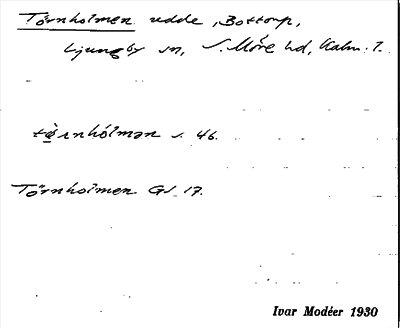 Törnholmen udde, Bottorp,
Ljungby sn, S. Möre hd, Kalm. l.
tö̱rnhólmən s. 46.
Törnholmen GS 17.
Ivar Modéer 1930